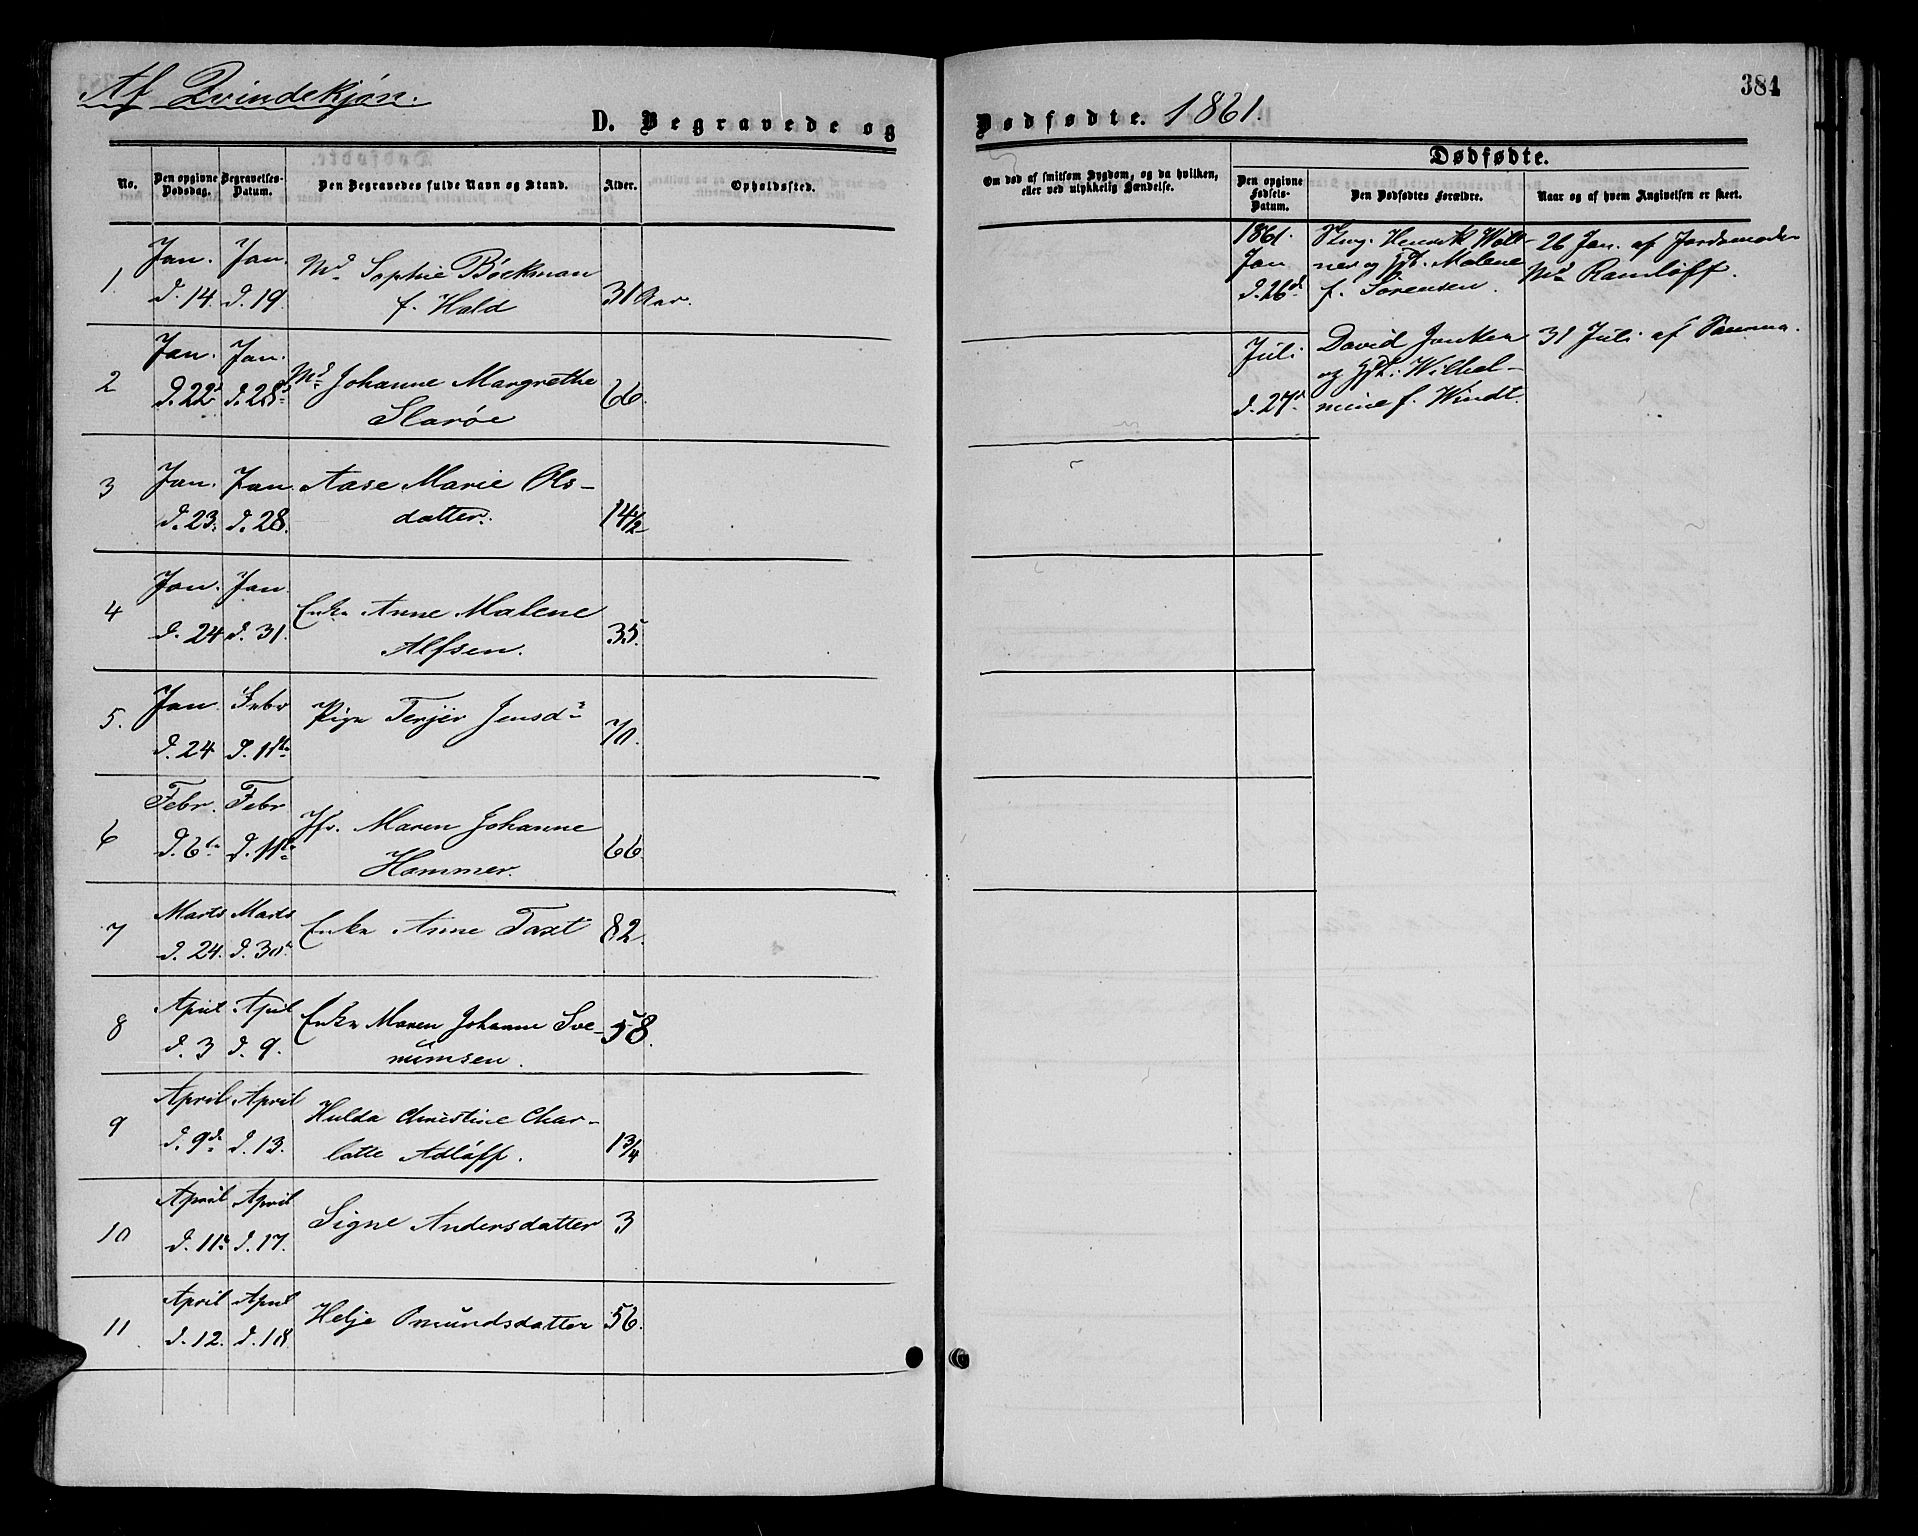 Af Qvindekjøn.
D. Begravede og
No.
Den opgivne Dødsdag.
Begravelses-Datum.
Den Begravedes fulde Navn og Stand.
Alder.
Opholdssted.
1
Jan. Jan. Md Sophie Böckman
d. 14. d. 19. f. Hald 31 Aar.
2
Jan. Jan.
d. 22d d. 28d Md Johanne Margrethe 66.
Slarøe
3
Jan. Jan. Aase Marie Ols-
d. 23. d. 28. datter. 14 1/2
4
Jan. Jan. Enke Anne Malene
d. 24 d. 31. Alfsen. 35.
5.
Jan. Febr Pige Terjer Jensd.
d. 24 d. 11te 70.
6
Febr. Febr Jfr. Maren Johanne
d. 6te d. 11te Hammer. 66.
7
Marts Marts Enke Anne Taxt 82.
d. 24. d. 30.
8
April April Enke Maren Johanne Sve- 58.
d. 3 d. 9. numsen.
9
April April Hulda Christine Char-
d. 9de d. 13. lotte Adløff. 1 3/4
10
April April Signe Andersdatter 3
d. 11te d. 17.
11
April April Helje Omundsdatter 56.
d. 12. d. 18
Dødfødte. 1861.
381
Dødfødte.
Om død af smitsom Sygdom, og da hvilken,
eller ved ulykkelig Hændelse.
Den opgivne
Fødsels-
Datum.
Den Dødfødtes Forældre.
Naar og af hvem Angivelsen er skeet.
1861. Henrik Wall- 26 Jan. af Jordemoder
Jan nes og Malene Md Ramløff.
d. 26d f. Sørensen.
Juli David Jonken 31 Juli af Samme.
og Wilhel-
d. 27d mine f. Windt.